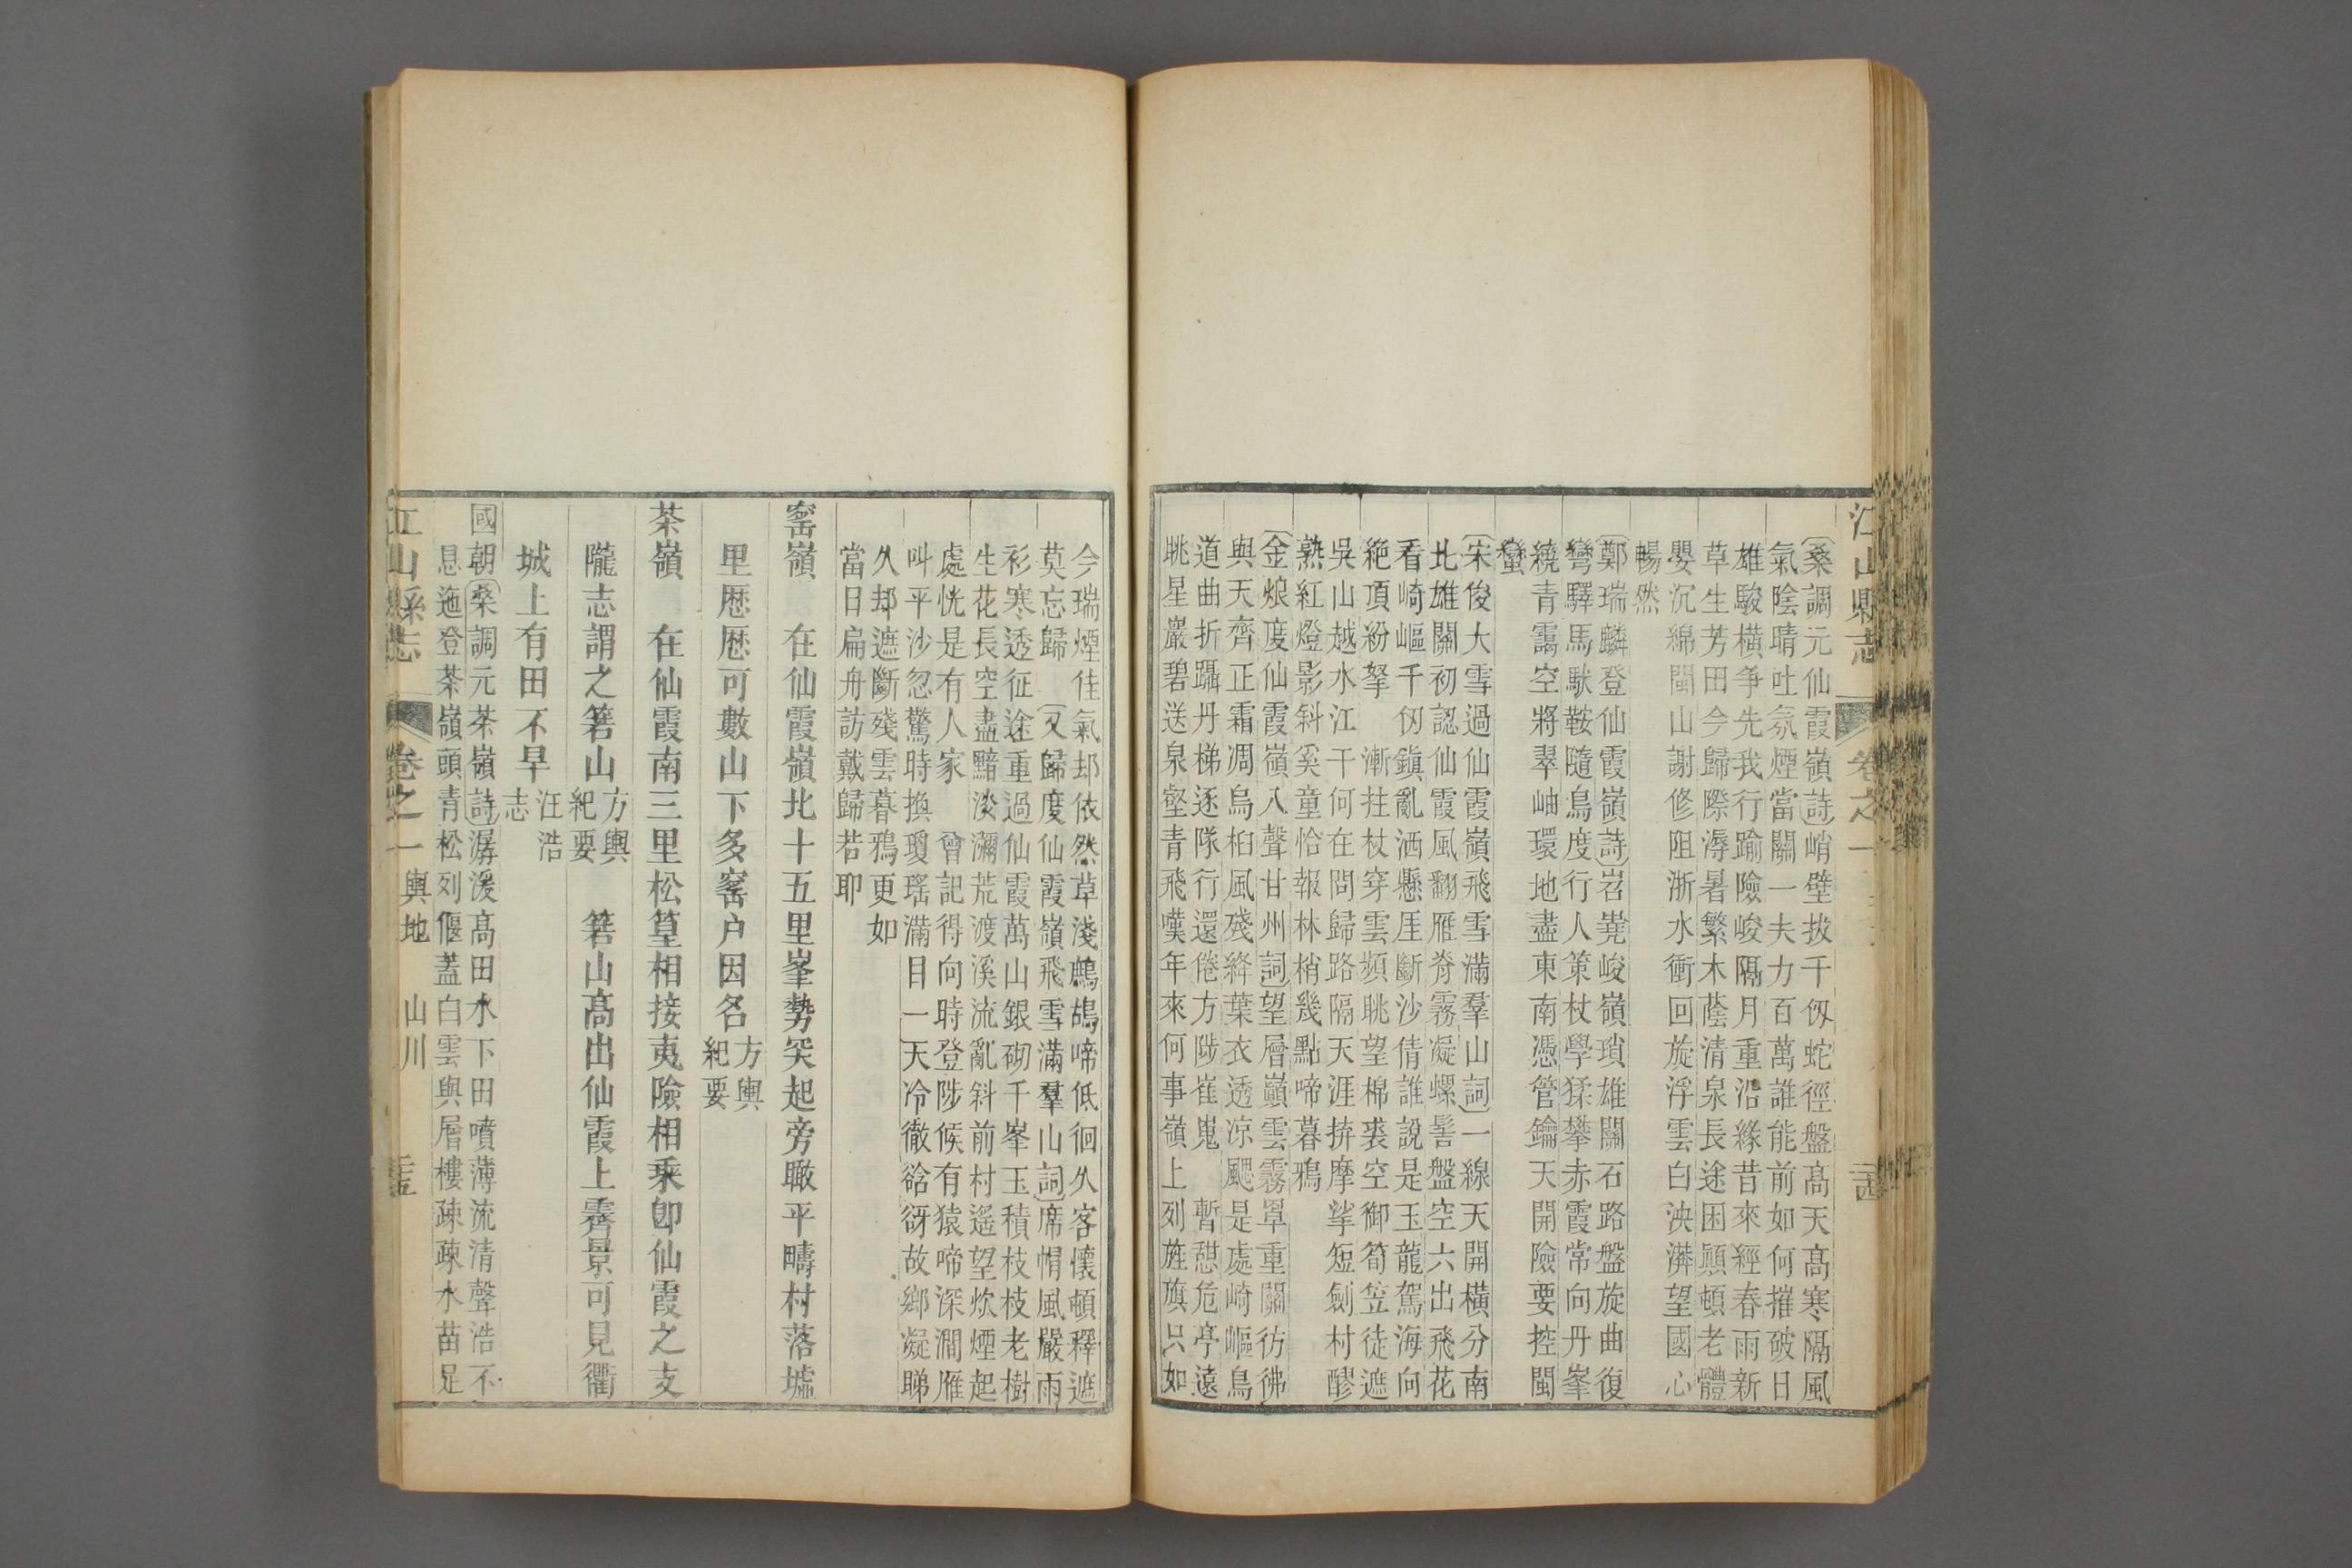 江山縣志 卷之一 二十四
桑調元仙霞嶺詩峭壁拔千仭蛇徑盤髙天髙寒隔風
氣陰晴吐氛煙當關一夫力百萬誰能前如何摧破日
雄駿橫争先我行踰險峻隔月重沿緣昔來經春雨新
草生芳田今歸際溽暑繁木蔭清泉長途困顚頓老體
嬰沉綿閩山謝修阻浙水衝回旋浮雲白泱漭望國心
暢然
鄭瑞麟登仙霞嶺詩岧嶤峻嶺瑣雄關石路盤旋曲復
彎驛馬馱鞍隨鳥度行人策杖學猱攀赤霞常向丹峯
繞青靄空將翠岫環地盡東南憑管鑰天開險要控閩
蠻
宋俊大雪過仙霞嶺飛雪滿羣山詞一線天開橫分南
北雄關初認仙霞風翻雁脊霧凝螺髻盤空六出飛花
看崎嶇千仭鎮亂洒懸厓斷沙倩誰說是玉龍駕海向
絶頂紛拏 漸拄杖穿雲頻眺望棉裘空御筍笠徒遮
吳山越水江干何在問歸路隔天涯拚摩挲短劍村醪
熟紅燈影斜奚童恰報林梢幾點啼暮鴉
金烺度仙霞嶺八聲甘州詞望層巔雲霧罩重關彷彿
與天齊正霜凋烏桕風殘絳葉衣透凉颸是處崎嶇鳥
道曲折躡丹梯逐隊行還倦方陟崔嵬 暫憇危亭遠
眺星巖碧送泉壑青飛嘆年來何事嶺上列旌旗只如
今瑞煙佳氣却依然草淺鷓鴣啼低徊久客懷頓釋遮
莫忘歸 又歸度仙霞嶺飛雪滿羣山詞席帽風嚴雨
衫寒透征途重過仙霞萬山銀砌千峯玉積枝枝老樹
生花長空盡黯淡瀰荒渡溪流亂斜前村遙望炊煙起
處恍是有人家 曾記得向時登陟候有猿啼深澗雁
叫平沙忽驚時換瓊瑤滿目一天冷徹谽谺故鄉凝睇
久却遮斷殘雲暮鴉更如
當日扁舟訪戴歸若耶
窰嶺 在仙霞嶺北十五里峯勢笶起旁瞰平疇村落墟
里厯厯可數山下多窰户因名方輿紀要
茶嶺 在仙霞南三里松篁相接夷險相乘卽仙霞之支
隴志謂之箬山方輿紀要 箬山髙出仙霞上霽景可見衢
城上有田不旱汪浩志
國朝桑調元茶嶺詩潺湲髙田水下田噴薄流清聲浩不
息迤登茶嶺頭青松列偃蓋白雲與層樓疎疎水苗足
江山縣志 卷之一 輿地 山川 二十五